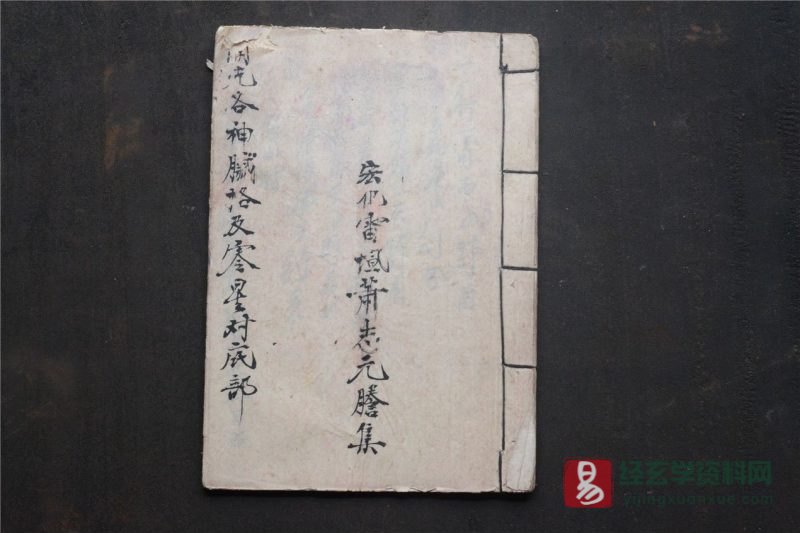 宏化雷壇蕭志元謄集
開光各神臟格及零星对底部
易
经玄学资料网
yijingxuanxue.com